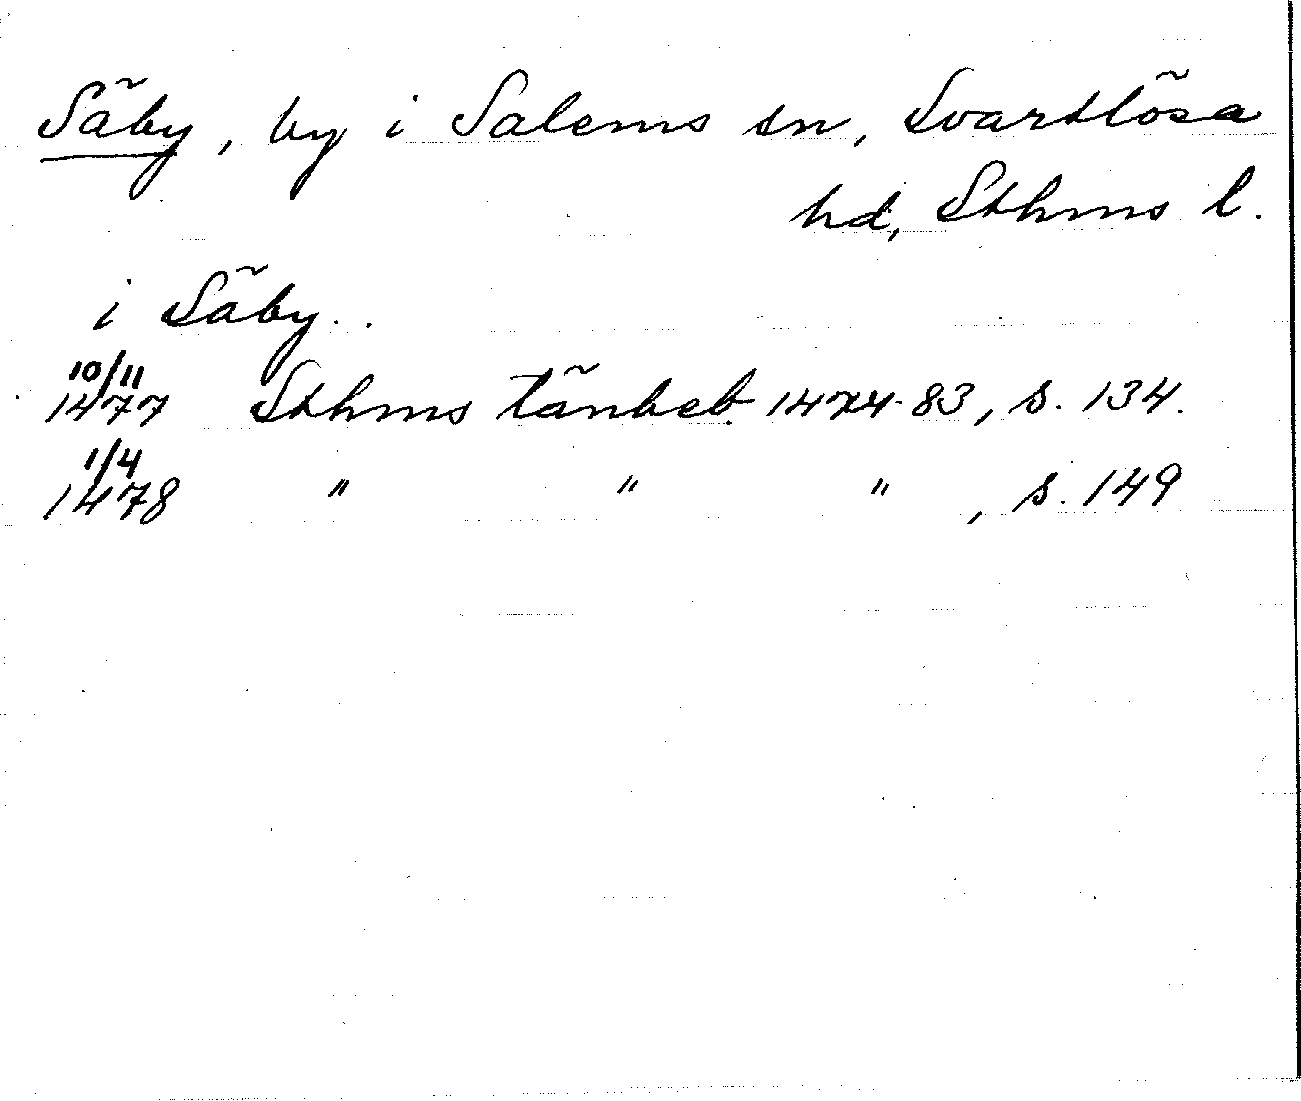 Säby, by i Salems sn, Svartlösa
hd, Sthms l.
i Säby.
10/11
1477 Sthms tänkeb. 1474-83, s. 134.
1/4
1478 " " " , s. 149